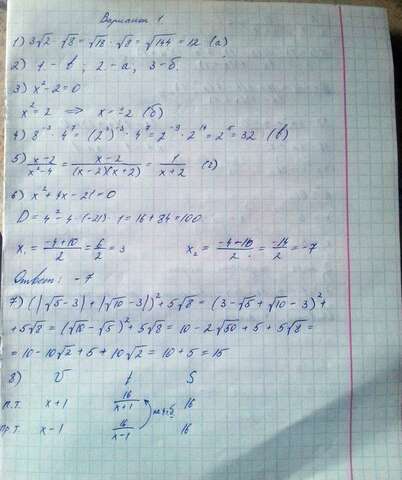 Вариант 1
1) 3√2 · √8 = √18 · √8 = √144 = 12 (а)
2) 1 - в ; 2 - а, 3 - б.
3) x² - 2 = 0
x² = 2 ⇒ x = ±2 (б)
4) 8⁻³ · 4⁷ = (2³)⁻³ · 4⁷ = 2⁻⁹ · 2¹⁴ = 2⁵ = 32 (в)
5) (x-2)/(x²-4) = (x-2)/((x-2)(x+2)) = 1/(x+2) (г)
6) x² + 4x - 21 = 0
D = 4² - 4 · (-21) · 1 = 16 + 84 = 100
x₁ = (-4+10)/2 = 6/2 = 3 x₂ = (-4-10)/2 = -14/2 = -7
Ответ: -7
7) (|√5 - 3| + |√10 - 3|)² + 5√8 = (3 - √5 + √10 - 3)² +
+ 5√8 = (√10 - √5)² + 5√8 = 10 - 2√50 + 5 + 5√8 =
= 10 - 10√2 + 5 + 10√2 = 10 + 5 = 15
8) V t S
п.т. x+1 16/(x+1) 16
пр.т. x-1 16/(x-1) 16